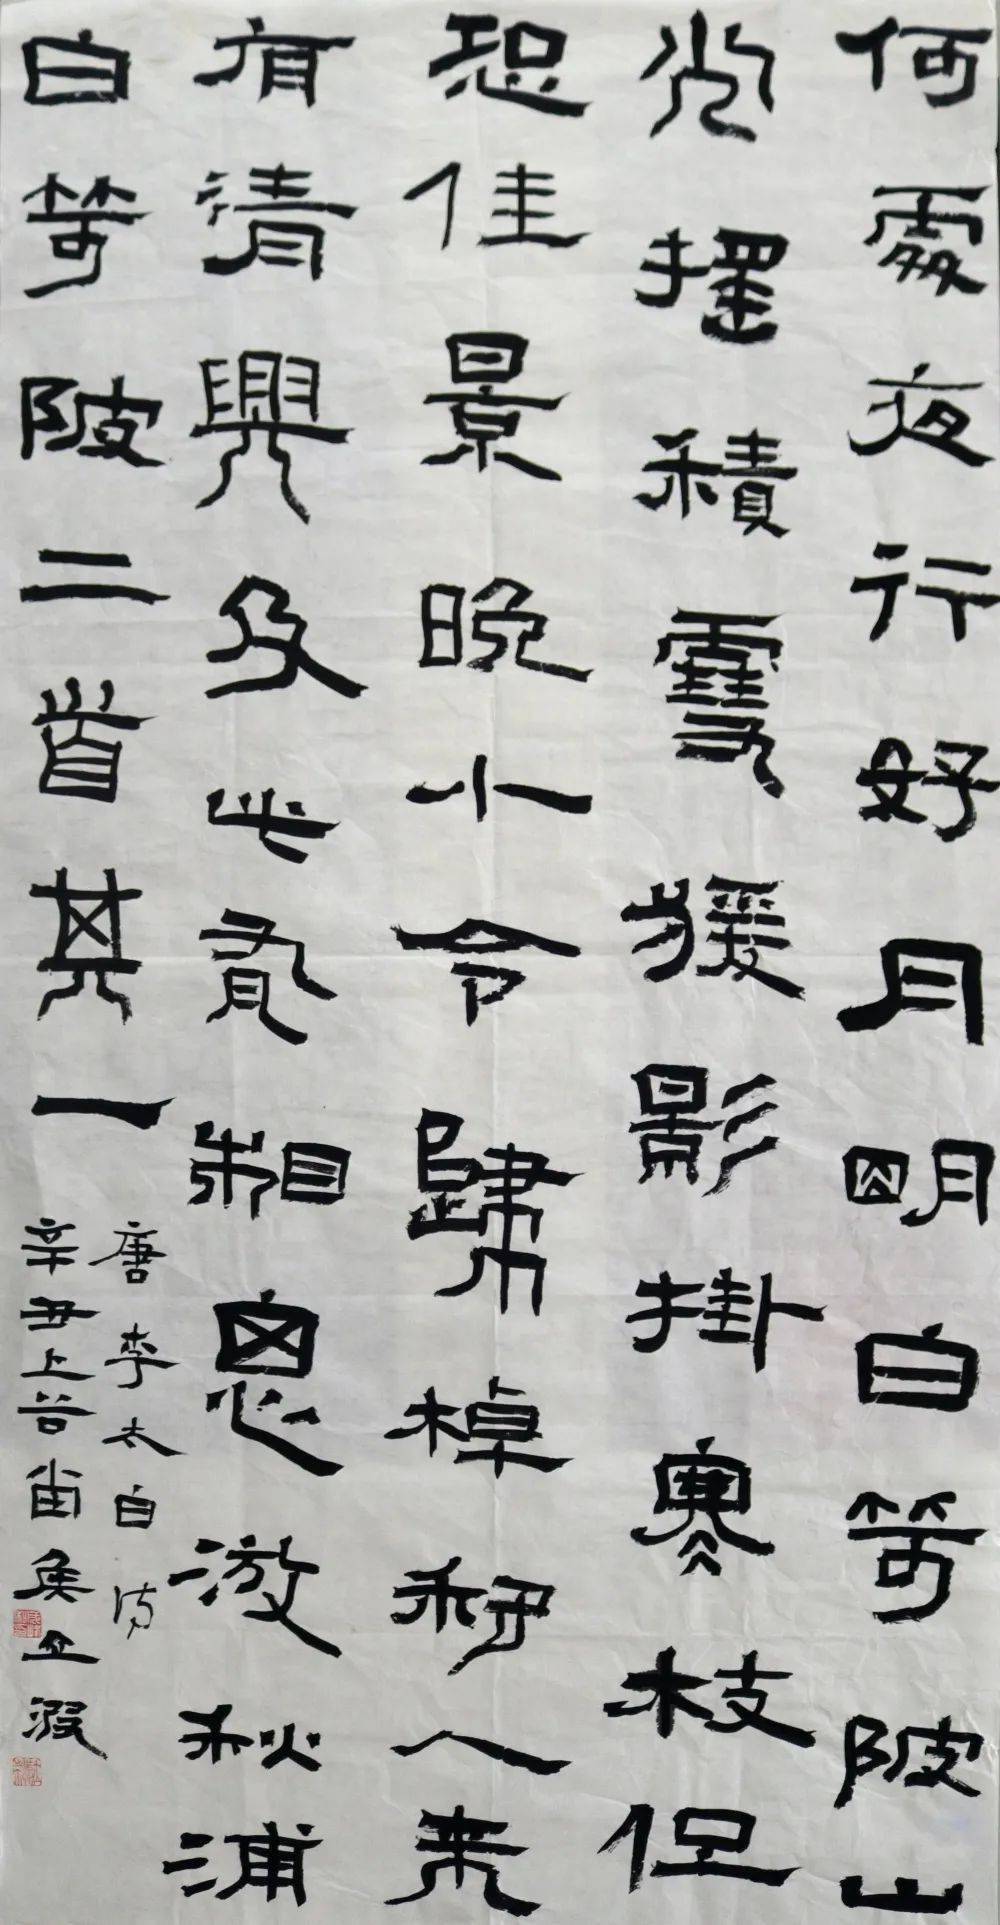 何處夜行好月明白笴陂山
光摇積雪猨影掛寒枝但
恐佳景晚小令歸棹移人来
有清興及此有相思游秋浦
白笴陂二首其一
唐李太白詩
辛丑上谷侯